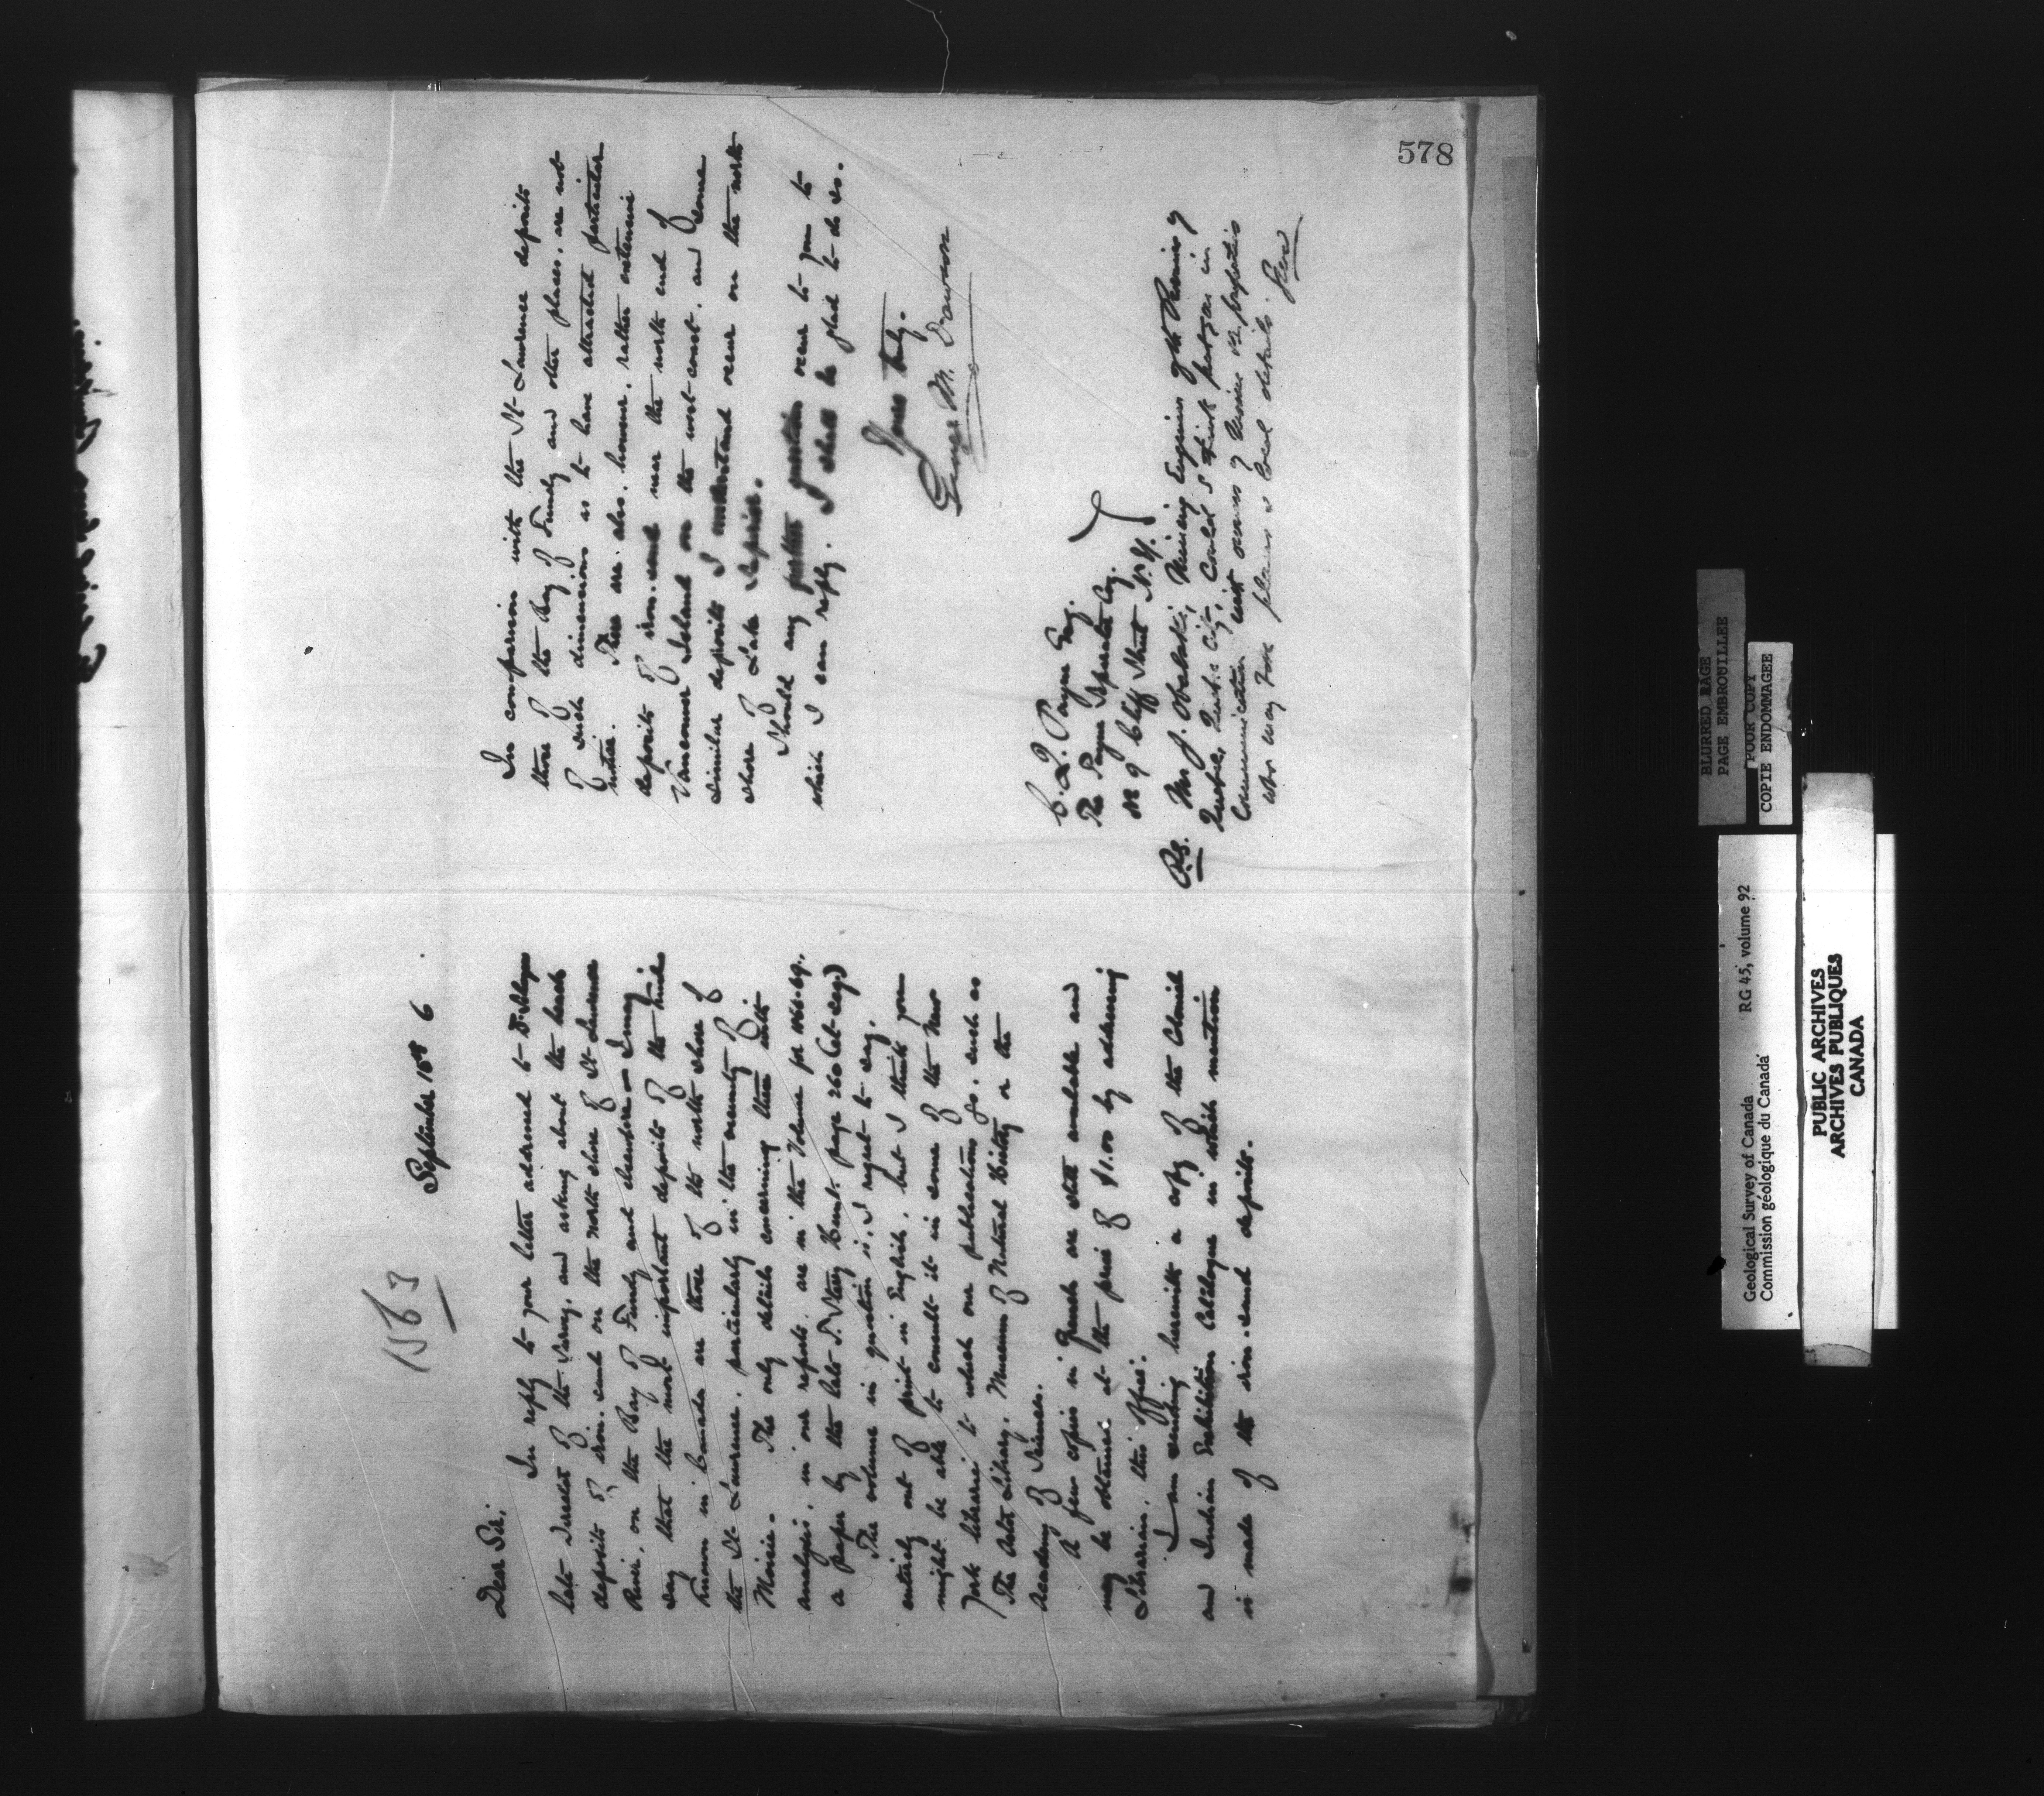 578
1563
September 1st 6
Dear Sir,
In reply to your letter addressed to Dr. Selwyn
late Director of the Survey, and asking about the
deposits of iron-sand on the north shore of St Lawrence
River, on the Bay of Fundy and elsewhere — I may
say that the most important deposits of the kind
known in Canada are those of the north shore of
the St Lawrence, particularly in the vicinity of
Moisie. The only details concerning these with
analyses, in our reports, are in the Volume for 1866-69,
a paper by the late Dr Sterry Hunt. page 260 (et seq.)
The volume in question is, I regret to say,
entirely out of print in English, but I think you
might be able to consult it in some of the New
York libraries to which our publications go, such as
The Astor Library, Museum of Natural History or the
Academy of Sciences.
A few copies in French are still available and
may be obtained at the price of $1.00 by addressing
Librarian, this Office.
I am sending herewith a copy of the Colonial
and Indian Exhibition Catalogue in which mention
is made of the iron-sand deposits.
In comparison with the St Lawrence deposits
those of the Bay of Fundy and other places, are not
of such dimensions as to have attracted particular
notice. There are also, however, rather extensive
deposits of iron-sand near the north end of
Vancouver Island on the west coast, and some
similar deposits I understand occur on the north
shore of Lake Superior.
Should any further question occur to you to
which I can reply, I shall be glad to do so.
Yours truly,
George M. Dawson
C. Q. Payne Esq.
The Payne Separator Coy.
No 9 Cliff Street N.Y.
P.S. Mr J. Obalski, Mining Engineer of the Province of
Quebec, Quebec City, Could I think put you in
Communication with owners of mines or properties
who may have plans & local details.
GMD
BLURRED PAGE
PAGE EMBROUILLEE
POOR COPY
COPIE ENDOMMAGEE
Geological Survey of Canada RG 45, volume 92
Commission géologique du Canada
PUBLIC ARCHIVES
ARCHIVES PUBLIQUES
CANADA